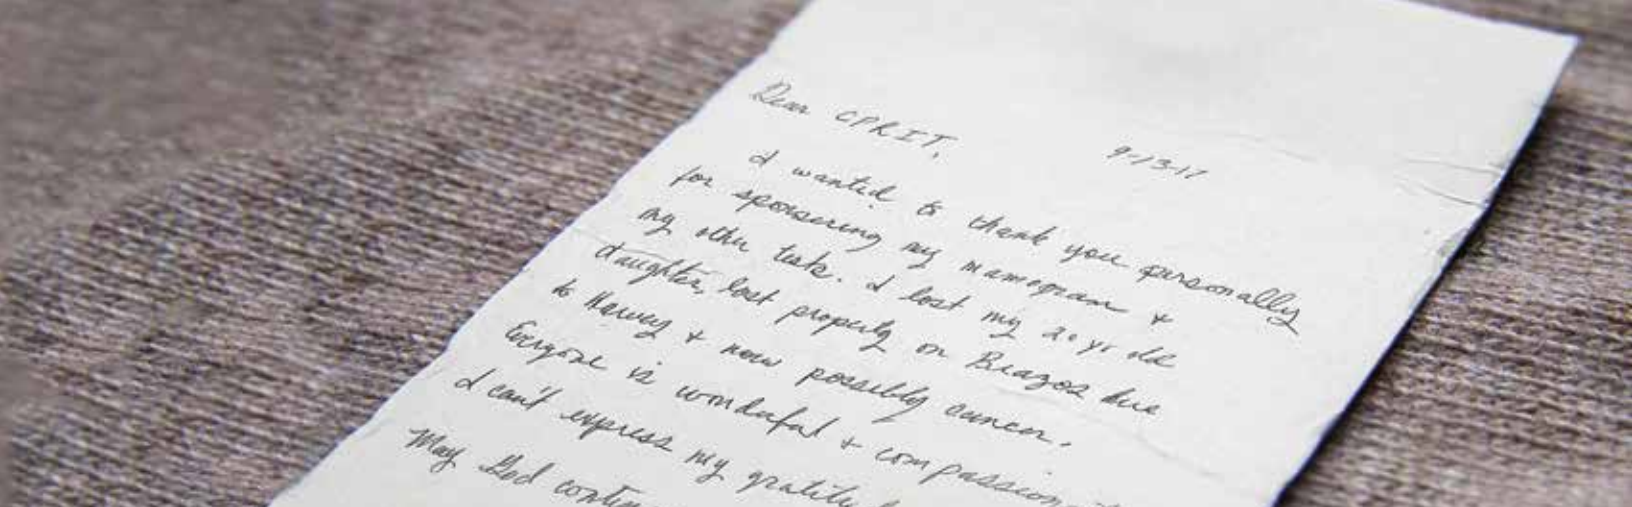 Dear CPRIT,
9-13-17
I wanted to thank you personally
for sponsering my mamogram +
my other tests. I lost my 20 yr old
daughter, lost property on Brazos due
to Harvey & now possibly cancer.
Everyone is wonderful + compassion
I can't express my gratitude
May God contin